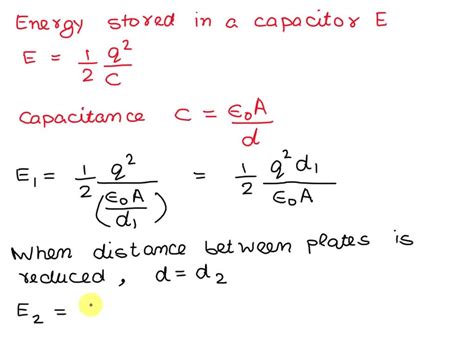 Energy stored in a capacitor E
E = 1/2 q²/C
Capacitance C = ε₀A/d
E₁ = 1/2 q²/(ε₀A/d₁) = 1/2 q²d₁/ε₀A
When distance between plates is
reduced, d = d₂
E₂ =